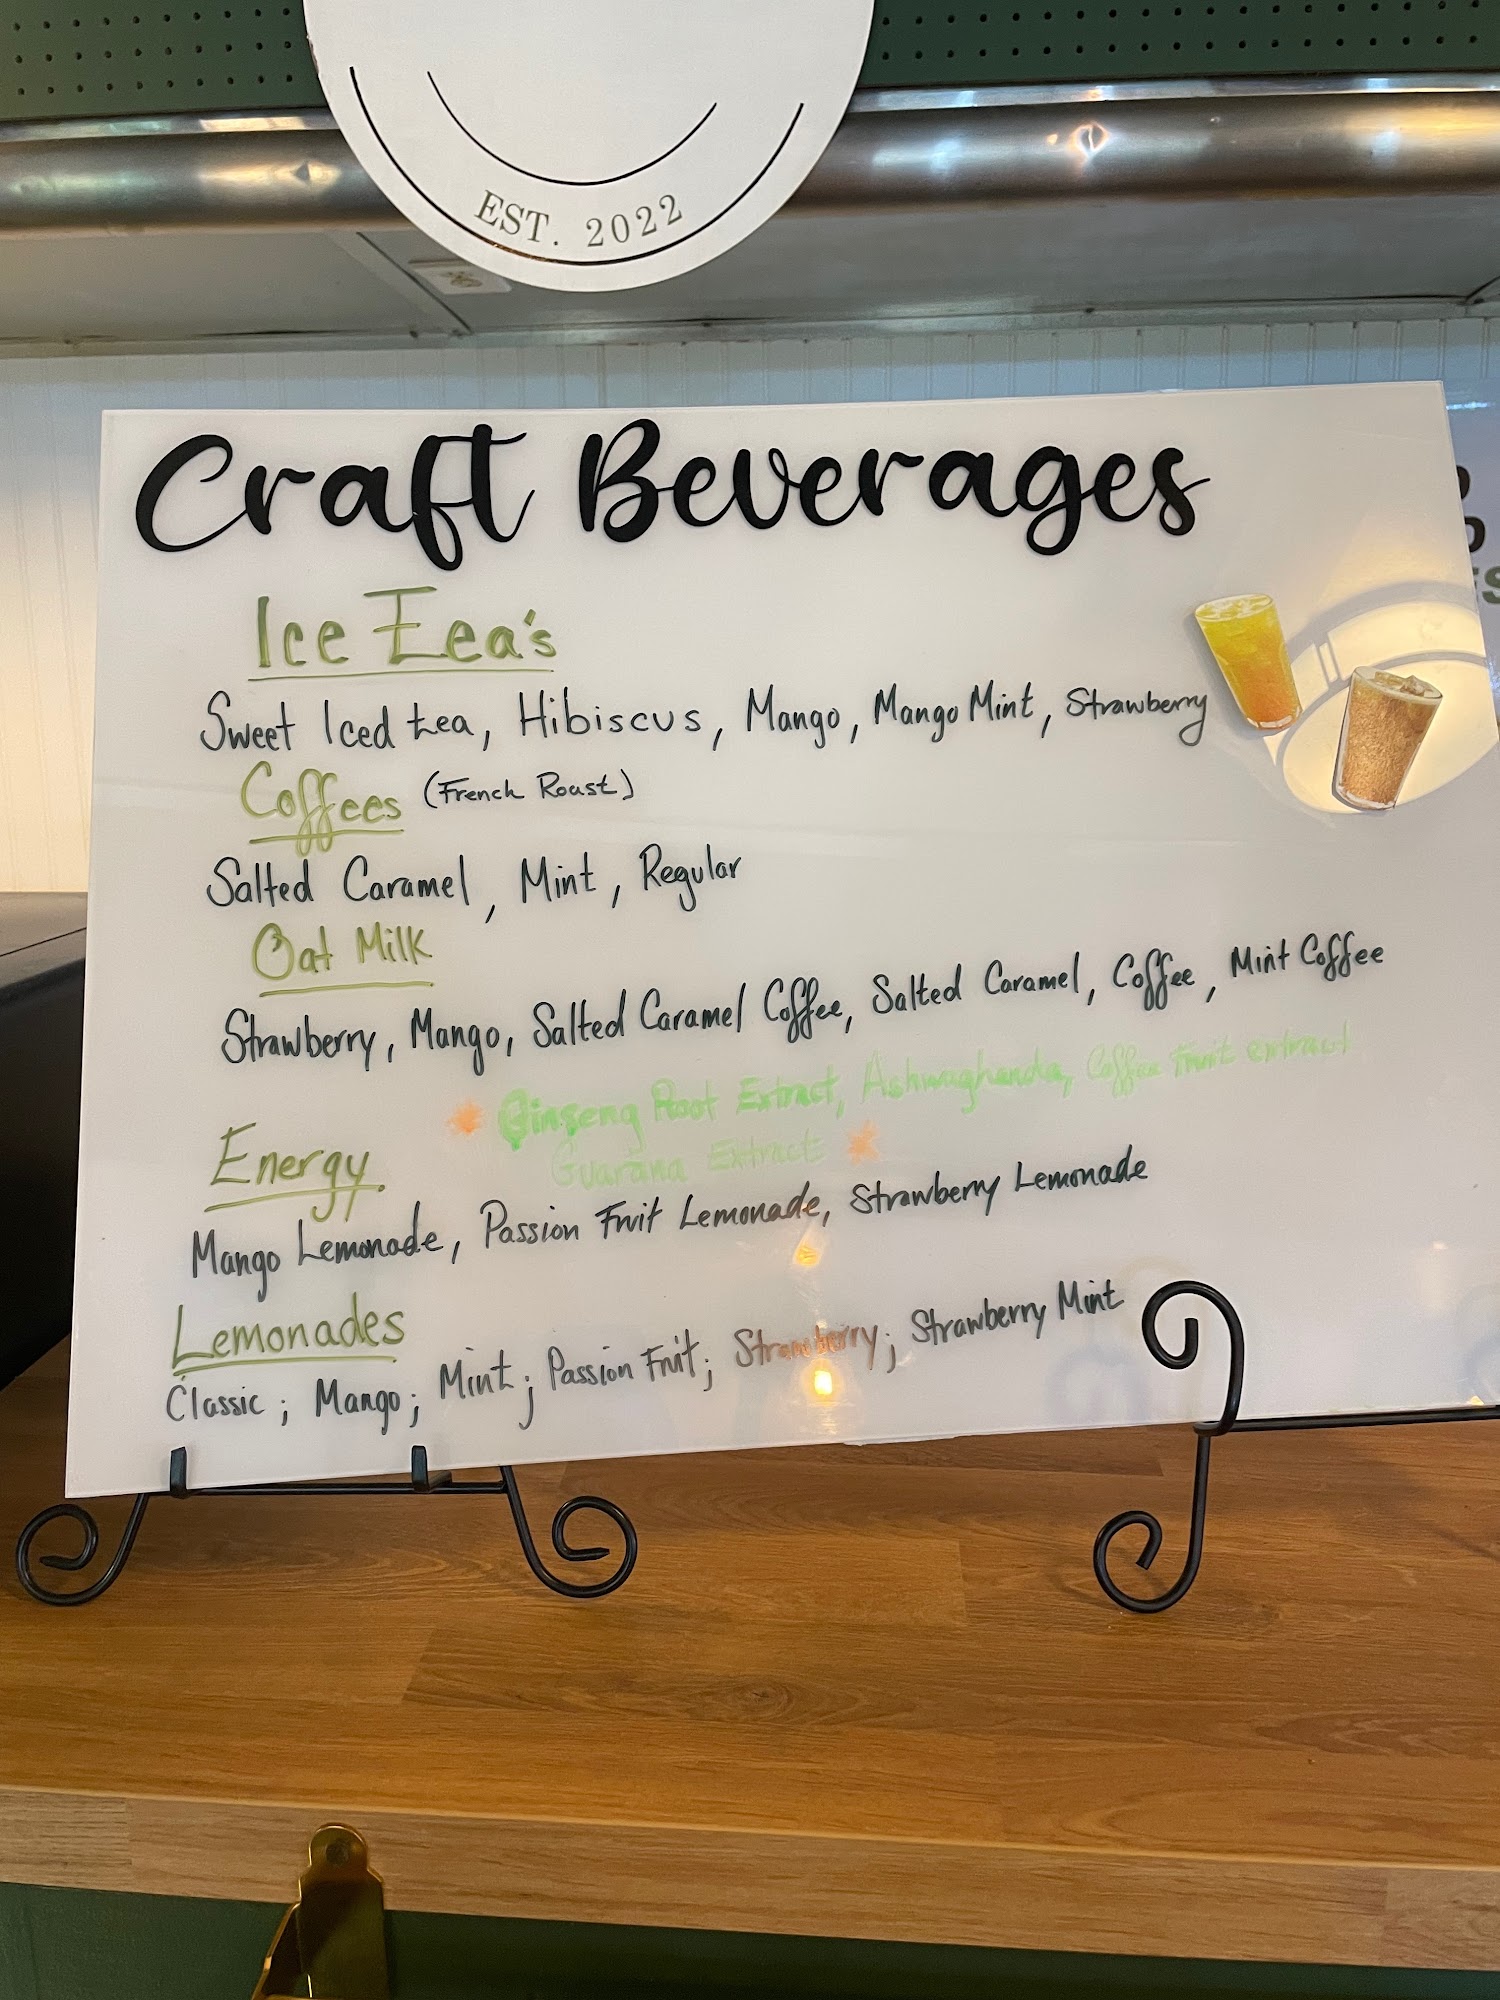 EST. 2022
Craft Beverages
Ice Tea's
Sweet Iced tea, Hibiscus, Mango, Mango Mint, Strawberry
Coffees (French Roast)
Salted Caramel, Mint, Regular
Oat Milk
Strawberry, Mango, Salted Caramel Coffee, Salted Caramel, Coffee, Mint Coffee
Ginseng Root Extract, Ashwaghanda, Coffee Fruit extract
Guarana Extract
Energy
Mango Lemonade, Passion Fruit Lemonade, Strawberry Lemonade
Lemonades
Classic; Mango; Mint; Passion Fruit; Strawberry; Strawberry Mint